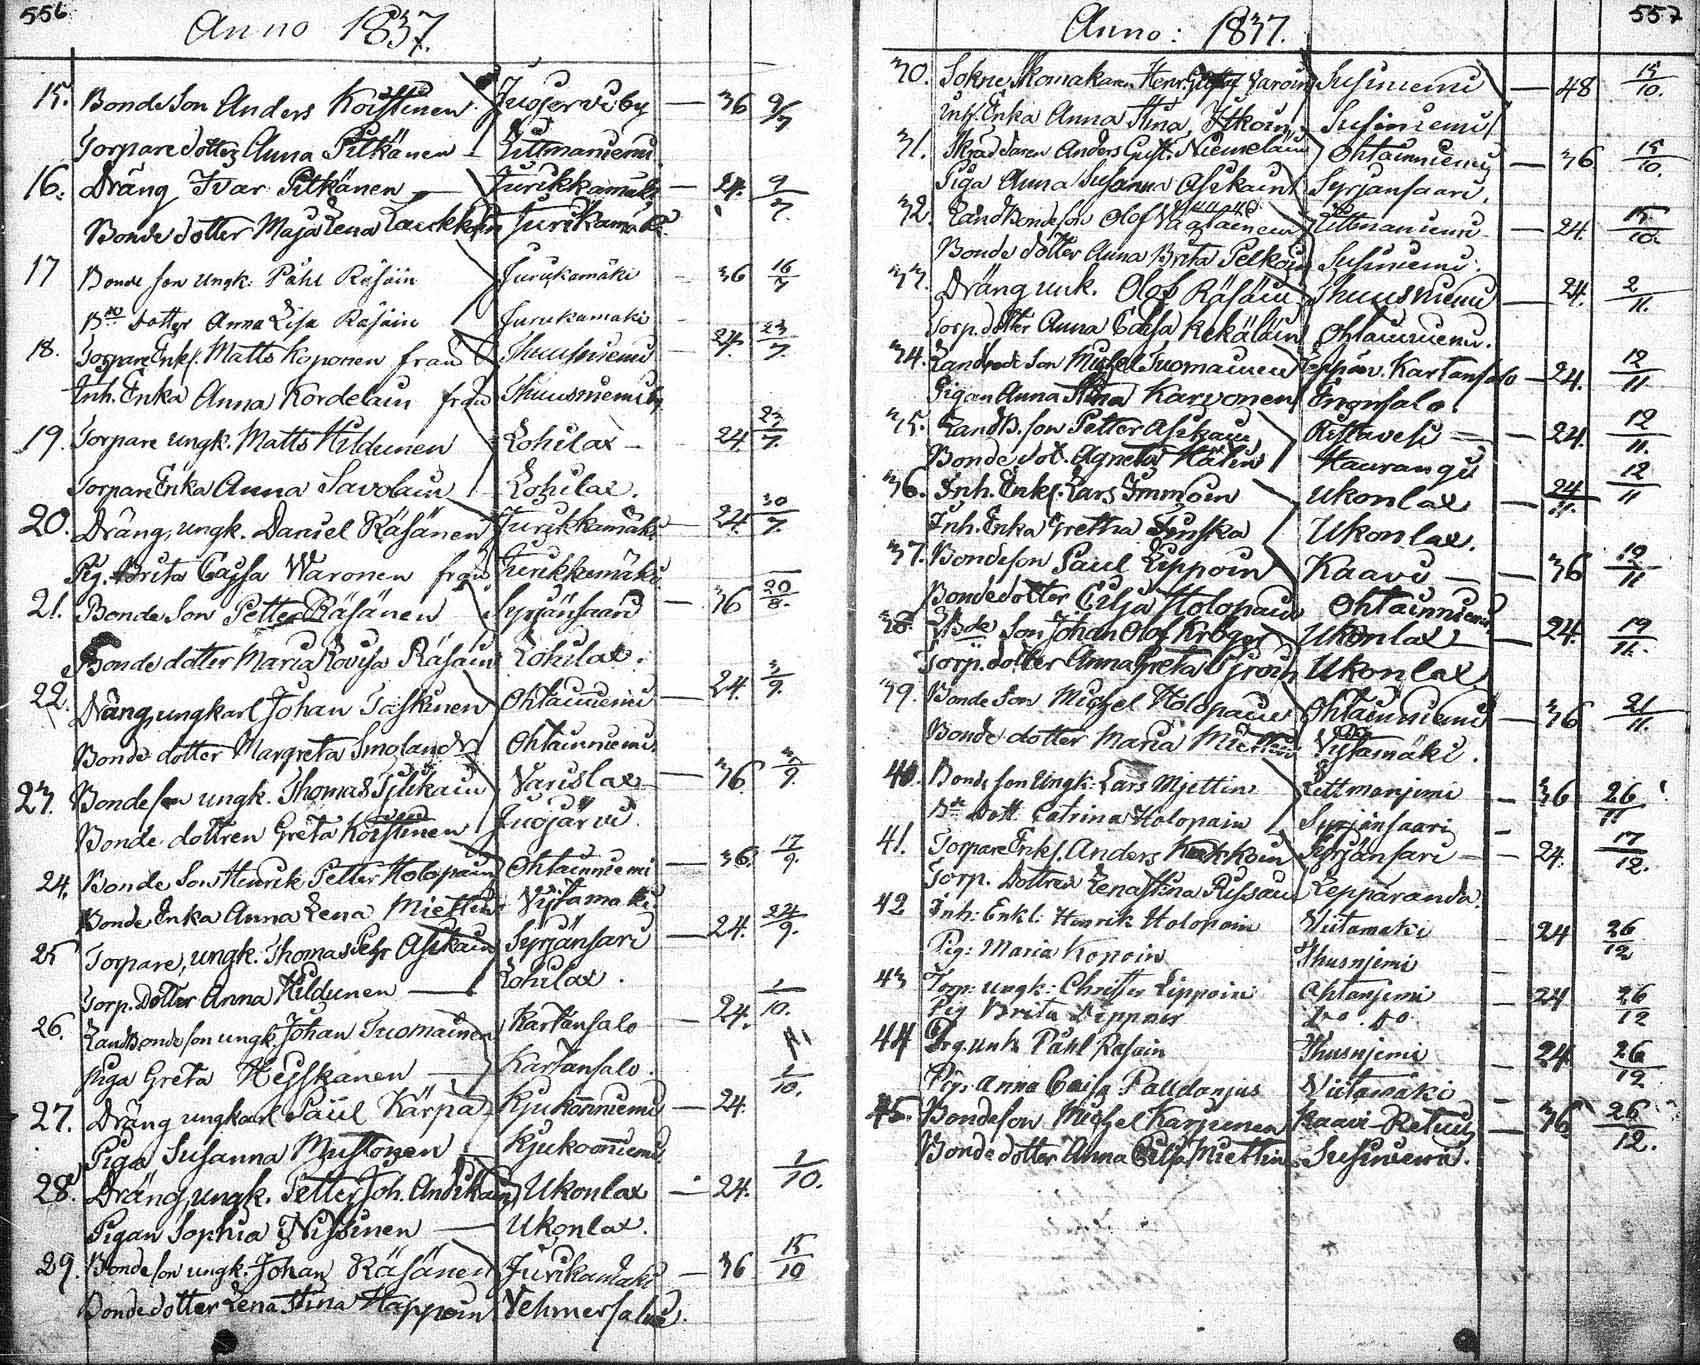 556
Anno 1837.
15. Bonde Son Anders Koistinen Juojerviby — 36 9/7
Torpare dotter Anna Pitkänen — Littmaniemi
16. Dräng Ivar Pitkänen — Jurikkamäki — 24. 9/7.
Bonde dotter Maja Lena Laukkain Jurikamäki
17 Bonde son Ungk: Påhl Räsäin Jurukamäki - 36 16/7
Bde dotter Anna Lisa Räsäin Jurukamäki -
18. Torpare Enkl. Matts Koponen från Thuusniemi — 24. 23/7.
Inh. Enka Anna Kordelain från Thuusniemi by
19. Torpare ungk. Matts Hildunen Lohilax — 24. 23/7.
Torpare Enka Anna Savolain Lohilax.
20. Dräng, ungk. Daniel Räsänen Jurikkamäki — 24. 30/7.
Pig. Brita Cajsa Waronen från Jurikkamäki
21. Bonde Son Petter Räsänen Syrjänsaari — 36 20/8.
Bonde dotter Maria Lovisa Räsäin Lohilax.
22. Dräng, ungkarl Johan Taskinen Ohtainniemi — 24. 3/9.
Bonde dotter Margreta Smolander Ohtainniemi
23. Bonde son ungk. Thomas Tjukain Varislax — 36. 3/9.
Bonde dottren Greta Koistinen Juojärvi.
24. Bonde Son Henrik Petter Holopain Ohtainniemi — 36. 17/9.
Bonde Enka Anna Lena Miettin Viitamäki
25 Torpare, ungk. Thomas Petr Asikain Syrjänsari — 24. 24/9.
Torp. Dotter Anna Hildunen — Lohilax.
26. Landbonde son ungk. Johan Tuomainen Kartansalo — 24. 1/10.
Piga Greta Heiskanen — Kartansalo.
27. Dräng ungkarl Paul Kärpä Kjukonniemi — 24. 1/10.
Piga Susanna Mustonen — Kjukonniemi
28. Dräng, ungk. Petter Joh. Andikain Ukonlax — 24. 1/10.
Pigan Sophia Nissinen — Ukonlax.
29. Bonde son ungk. Johan Räsänen Jurikamäki — 36 15/10
Bonde dotter Lena Stina Happoin Vehmersalmi.
557
Anno: 1837.
30. Sokne Skomakaren Henr. Gustaf Saroin Susiniemi — 48 15/10.
Inh. Enka Anna Stina Itkoin Susiniemi
31. Skräddaren Anders Gust. Niemeläin Ohtainniemi — 36 15/10.
Piga Anna Susanna Asikain Syrjänsaari.
32. Landbonde son Olof Litmaniemi — 24. 15/10.
Bonde dotter Anna Brita Pelkoin Susiniemi.
33. Dräng unk. Olof Räsäin Thuusniemi — 24. 2/11.
Torp. dotter Anna Cajsa Kekäläin Ohtainniemi.
34. Landbonde Son Michel Tuomainen Leppäv. Kartansalo — 24. 12/11
Pigan Anna Stina Karvonen Enonsalo.
35. LandB. son Petter Asikain Ristavesi — 24. 12/11.
Bonde dot. Agneta Hälin Haurangi
36. Inh. Enkl. Lars Immoin Ukonlax — 24 12/11
Inh. Enka Gretha Tuiska Ukonlax.
37. Bonde son Paul Lippoin Kaavi — 36 19/11
Bonde dotter Cilja Holopain Ohtainniemi
38. Bde Son Johan Olof Kröger Ukonlax — 24. 19/11.
Torp. dotter Anna Greta Ukonlax
39. Bonde Son Michel Holopain Ohtainniemi — 36 21/11.
Bonde dotter Maria Miettin Viitamäki.
40. Bonde son Ungk: Lars Miettin Littmanjemi — 36 26/11
Bde Dott. Catrina Holopain Syrjänsaari —
41. Torpare Enkl. Anders Kukkoin Syrjänsari — 24. 17/12.
Torp. Dottren Lena Stina Rissain Lepparanda.
42 Inh: Enkl: Henrik Holopain Viitamäki — 24 26/12
Pig: Maria Kopoin Thusnjemi —
43 Torp: ungk: Christer Lippoin Ohtanjemi — 24 26/12
Pig Brita Lippoin Do. Do
44 Drg. unk Påhl Räsäin Thusnjemi — 24 26/12
Pig: Anna Caisa Palldanjus Viitamäki —
45. Bonde son Michel Karjunen Kaavi — 36 26/12.
Bonde dotter Anna Cilja Miettin Susiniemi.